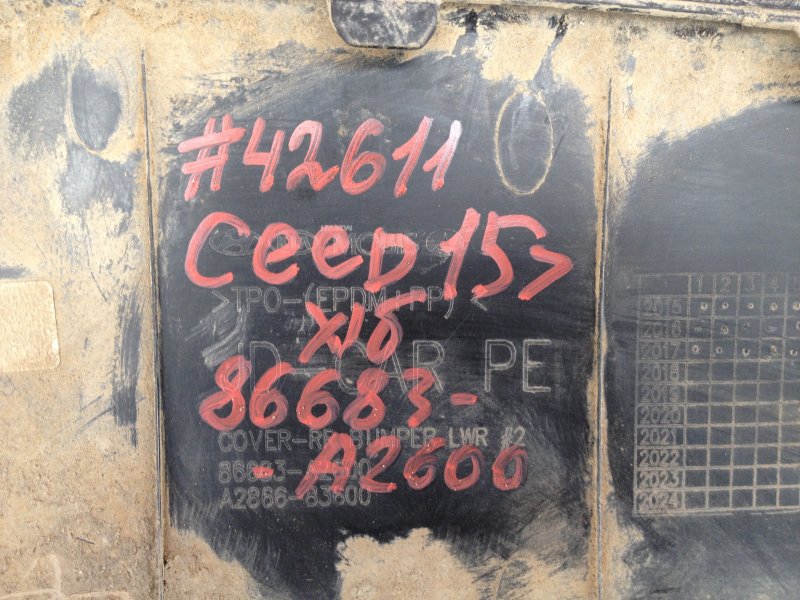 #42611
CeeD 15>
MOBIS
>TPO-(EPDM+PP)<
х/б
JD-CAR PE
86683-
COVER-RR BUMPER LWR #2
-A2600
86683-A2600
A2866-83600
1 2 3 4
2015
2016
2017
2018
2019
2020
2021
2022
2023
2024